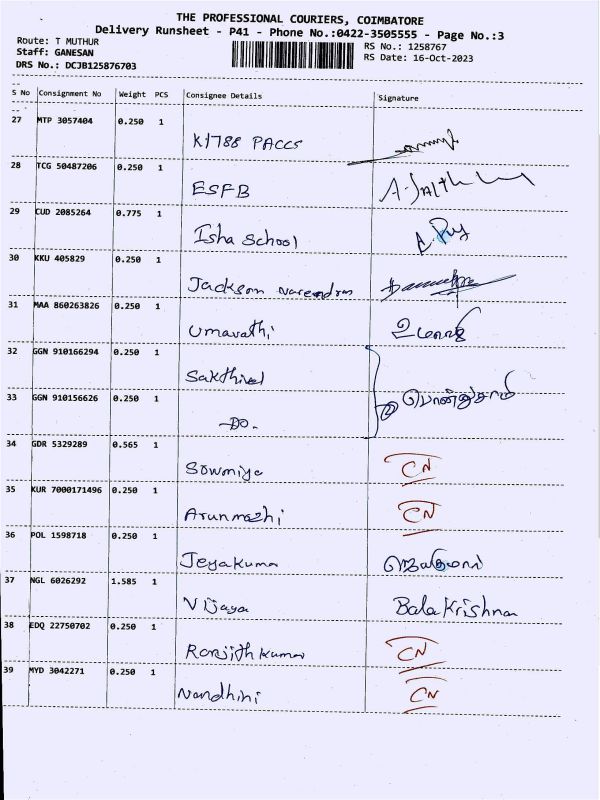 THE PROFESSIONAL COURIERS, COIMBATORE
Delivery Runsheet - P41 - Phone No.:0422-3505555 - Page No.:3
Route: T MUTHUR
RS No.: 1258767
Staff: GANESAN
RS Date: 16-Oct-2023
DRS No.: DCJB125876703
S No Consignment No Weight PCS Consignee Details Signature
27 MTP 3057404 0.250 1
K1788 PACCS
28 TCG 50487206 0.250 1
ESFB
29 CUD 2085264 0.775 1
Isha School
30 KKU 405829 0.250 1
Jackson Narendran
31 MAA 860263826 0.250 1
Umavathi
32 GGN 910166294 0.250 1
Sakthivel
33 GGN 910156626 0.250 1
-DO-
34 GDR 5329289 0.565 1
Sowmiya CN
35 KUR 7000171496 0.250 1
Arunmozhi CN
36 POL 1598718 0.250 1
Jeyakumar
37 NGL 6026292 1.585 1
Vijaya Bala Krishnan
38 EDQ 22750702 0.250 1
Ranjith Kumar CN
39 MYD 3042271 0.250 1
Nandhini CN